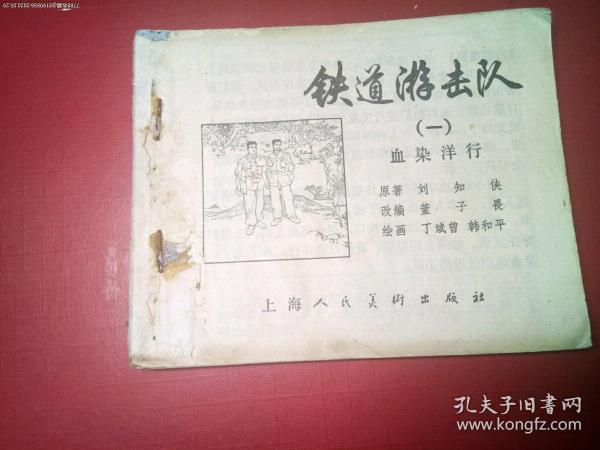 铁道游击队
(一)
血染洋行
原著 刘知侠
改编 董子畏
绘画 丁斌曾 韩和平
上海人民美術出版社
孔夫子旧书网
www.kongfz.com